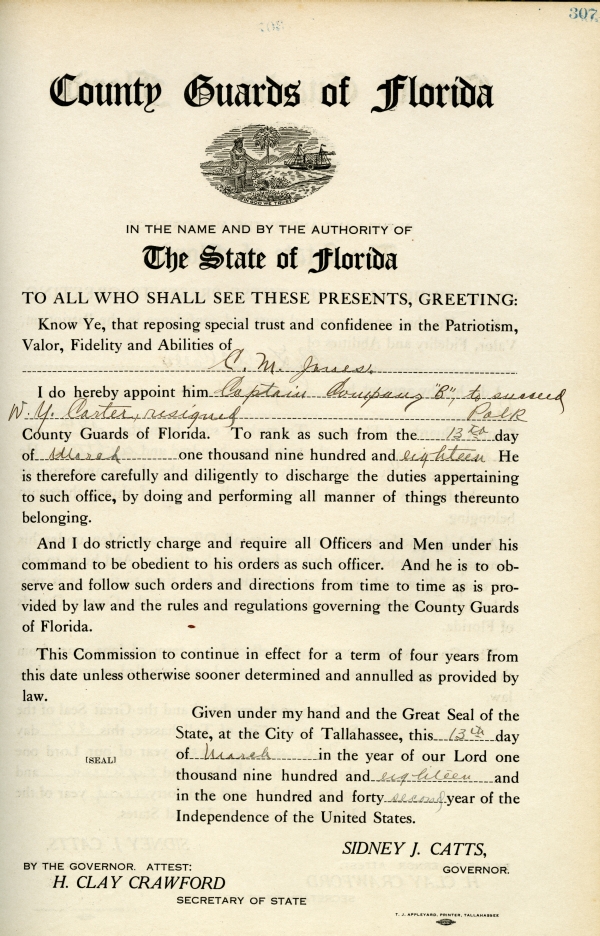 307
County Guards of Florida
IN GOD WE TRUST
IN THE NAME AND BY THE AUTHORITY OF
The State of Florida
TO ALL WHO SHALL SEE THESE PRESENTS, GREETING:
Know Ye, that reposing special trust and confidenee in the Patriotism,
Valor, Fidelity and Abilities of
C. M. Jones,
I do hereby appoint him Captain Company "B", to succeed
W. Y. Carter, resigned Polk
County Guards of Florida. To rank as such from the 13th day
of March one thousand nine hundred and eighteen He
is therefore carefully and diligently to discharge the duties appertaining
to such office, by doing and performing all manner of things thereunto
belonging.
And I do strictly charge and require all Officers and Men under his
command to be obedient to his orders as such officer. And he is to ob-
serve and follow such orders and directions from time to time as is pro-
vided by law and the rules and regulations governing the County Guards
of Florida.
This Commission to continue in effect for a term of four years from
this date unless otherwise sooner determined and annulled as provided by
law.
Given under my hand and the Great Seal of the
State, at the City of Tallahassee, this 13th day
[SEAL] of March in the year of our Lord one
thousand nine hundred and eighteen and
in the one hundred and forty second year of the
Independence of the United States.
SIDNEY J. CATTS,
GOVERNOR.
BY THE GOVERNOR. ATTEST:
H. CLAY CRAWFORD
SECRETARY OF STATE
T. J. APPLEYARD, PRINTER, TALLAHASSEE